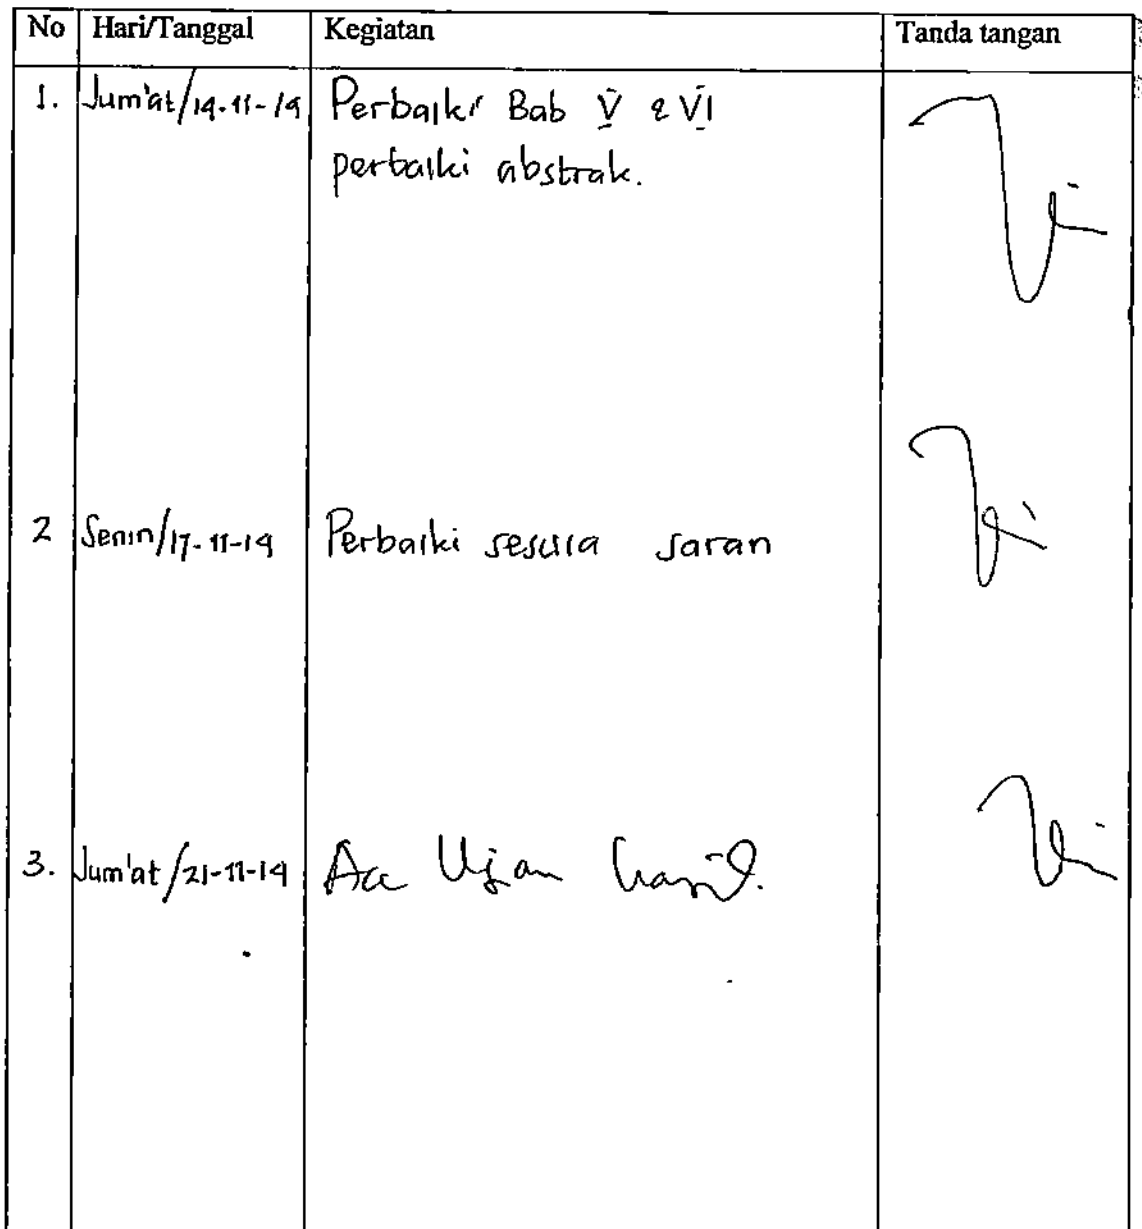 No Hari/Tanggal Kegiatan Tanda tangan
1. Jum'at/14-11-14 Perbaiki Bab V & VI
perbaiki abstrak.
2 Senin/17-11-14 Perbaiki sesuia saran
3. Jum'at/21-11-14 Acc Ujian hasil.